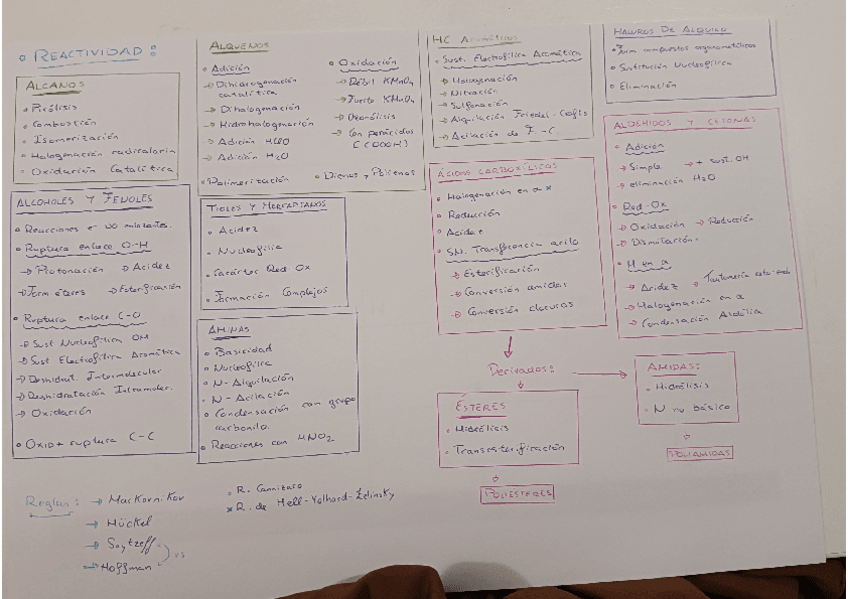 • REACTIVIDAD:
ALCANOS
• Pirólisis
• Combustión
• Isomerización
• Halogenación radicalaria
• Oxidación Catalítica
ALQUENOS
• Adición
→ Dihidrogenación catalítica
→ Dihalogenación
→ Hidrohalogenación
→ Adición HClO
→ Adición H2O
• Polimerización
• Oxidación
→ Débil KMnO4
→ Fuerte KMnO4
→ Ozonólisis
→ Con perácidos (COOOH)
• Dienos y Polienos
HC Aromáticos
• Sust. Electrofílica Aromática
→ Halogenación
→ Nitración
→ Sulfonación
→ Alquilación Friedel-Crafts
→ Acilación de F.-C.
HALUROS DE ALQUILO
• Form compuestos organometálicos
• Sustitución Nucleofílica
• Eliminación
ALCOHOLES Y FENOLES
• Reacciones e⁻ no enlazantes.
• Ruptura enlace O-H
→ Protonación → Acidez
→ Form éteres → Esterificación
• Ruptura enlace C-O
→ Sust Nucleofílica OH
→ Sust Electrofílica Aromática
→ Deshidrat. Intermolecular
→ Deshidratación Intramolec.
→ Oxidación
• Oxid + ruptura C-C
TIOLES Y MERCAPTANOS
• Acidez
• Nucleofilia
• Carácter Red-Ox
• Formación Complejos
AMINAS
• Basicidad
• Nucleofilia
• N-Alquilación
• N-Acilación
• Condensación con grupo carbonilo.
• Reacciones con HNO2
ÁCIDOS CARBOXÍLICOS
• Halogenación en α x
• Reducción
• Acidez
• SN. Transferencia acilo
→ Esterificación
→ Conversión amidas
→ Conversión cloruros
ALDEHIDOS Y CETONAS
• Adición
→ Simple → + sust. OH
→ eliminación H2O
• Red-Ox
→ Oxidación → Reducción
→ Dismutación.
• H en α
→ Acidez → Tautomería ceto-enol
→ Halogenación en α
→ Condensación Aldólica
Derivados:
ÉSTERES
• Hidrólisis
• Transesterificación
POLIESTERES
AMIDAS:
• Hidrólisis
• N no básico
POLIAMIDAS
Reglas: → Markovnikov
→ Hückel
→ Saytzeff
→ Hoffman
vs
• R. Cannizaro
x R. de Hell-Volhard-Zelinsky